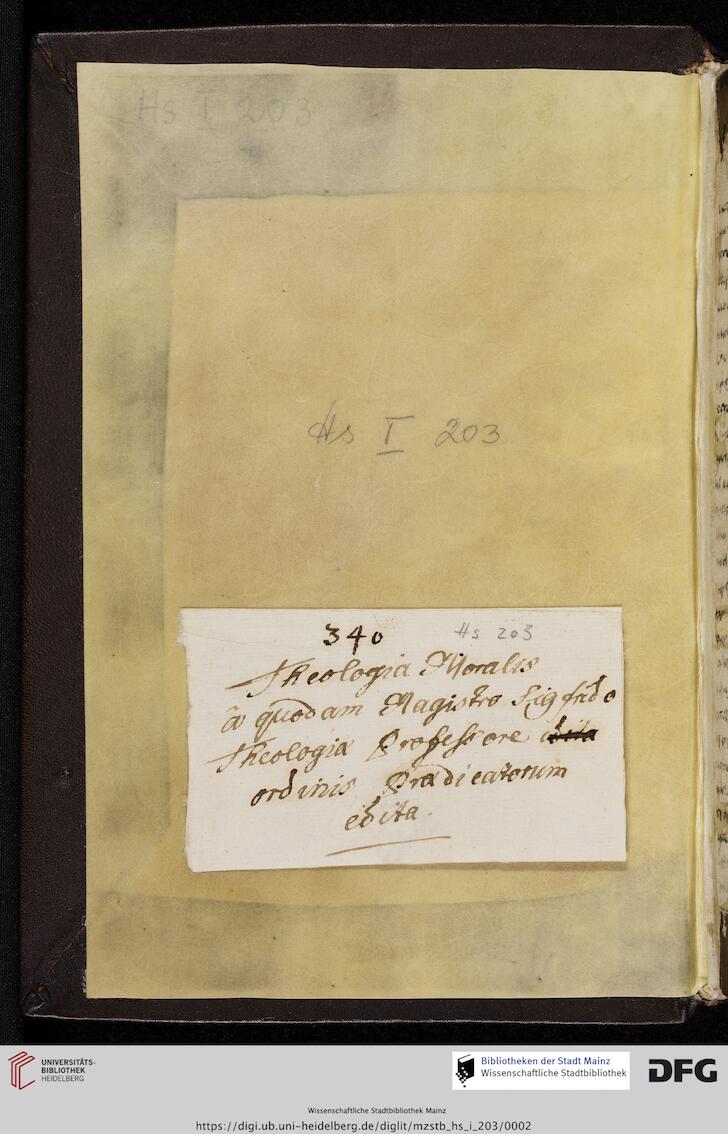 Hs I 203
Hs I 203
340 Hs 203
Theologia Moralis
â quodam Magistro Sigfrido
Theologia Professore edita
ordinis Prædicatorum
edita.
UNIVERSITÄTS-
BIBLIOTHEK
HEIDELBERG
Bibliotheken der Stadt Mainz
Wissenschaftliche Stadtbibliothek
DFG
Wissenschaftliche Stadtbibliothek Mainz
https://digi.ub.uni-heidelberg.de/diglit/mzstb_hs_i_203/0002